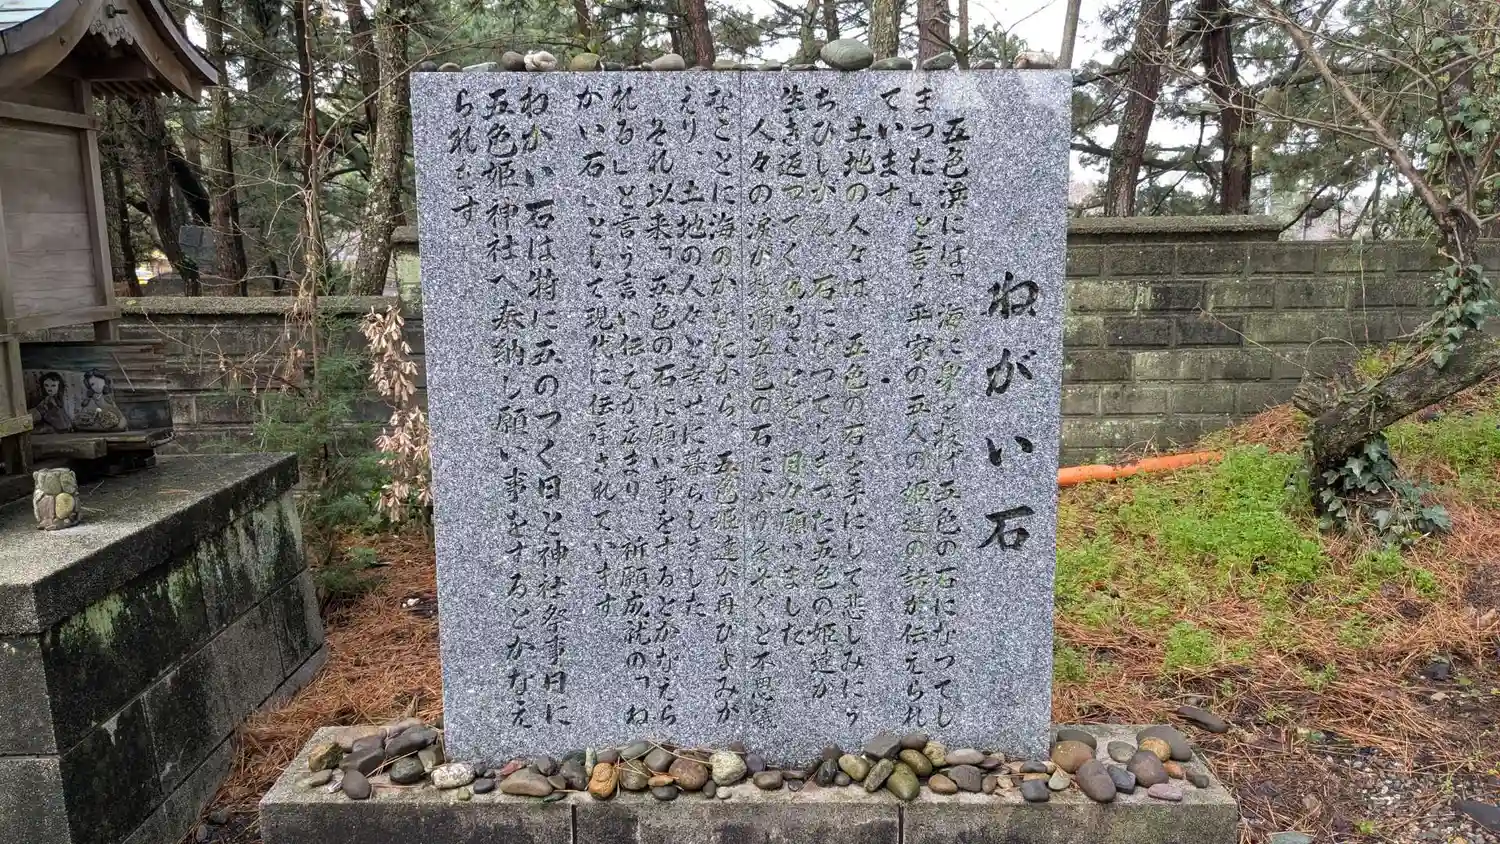 ねがい石
五色浜には「海に身を投げ五色の石になってし
まった」と言う平家の五人の姫達の話が伝えられ
ています。
土地の人々は、五色の石を手にして悲しみにう
ちひしがれ、石になってしまった五色の姫達が
生き返ってくれるさいと、日々願いました
人々の涙が毎消五色の石にふりそそぐと不思議
なことに海のかなたから、五色姫達が再びよみが
えり、土地の人々と幸せに暮らしました
それ以来「五色の石に願い事をするとかなえら
れる」と言う言い伝えが広まり 祈願成就の「ね
がい石」として現代に伝承されています
ねがい石は特に五のつく日と神社祭事日に
五色姫神社へ奉納し願い事をするとかなえ
られます